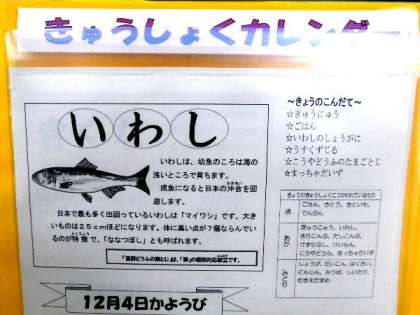 きゅうしょくカレンダー
いわし
いわしは、幼魚のころは海の
浅いところで育ちます。
成魚になると日本の沖合を回
遊します。
日本で最も多く出回っているいわしは「マイワシ」です。大き
いものは25cmほどになります。体に黒い点が7個ならんでい
るのが特徴で、「ななつぼし」とも呼ばれます。
12月4日かようび
~きょうのこんだて~
☆ぎゅうにゅう
☆ごはん
☆いわしのしょうがに
☆うすくずじる
☆こうやどうふのたまごとじ
☆まっちゃだいず
きゅうしょくにつかわれているもの
き
ごはん、さとう、
でんぷん
あか
ぎゅうにゅう、いわし、
とりにく、
けいらん、
こうやどうふ、まっちゃだいず
みどり
しょうが、だいこん、はくさい、
にんじん、みつば、しいたけ、
むきえだまめ